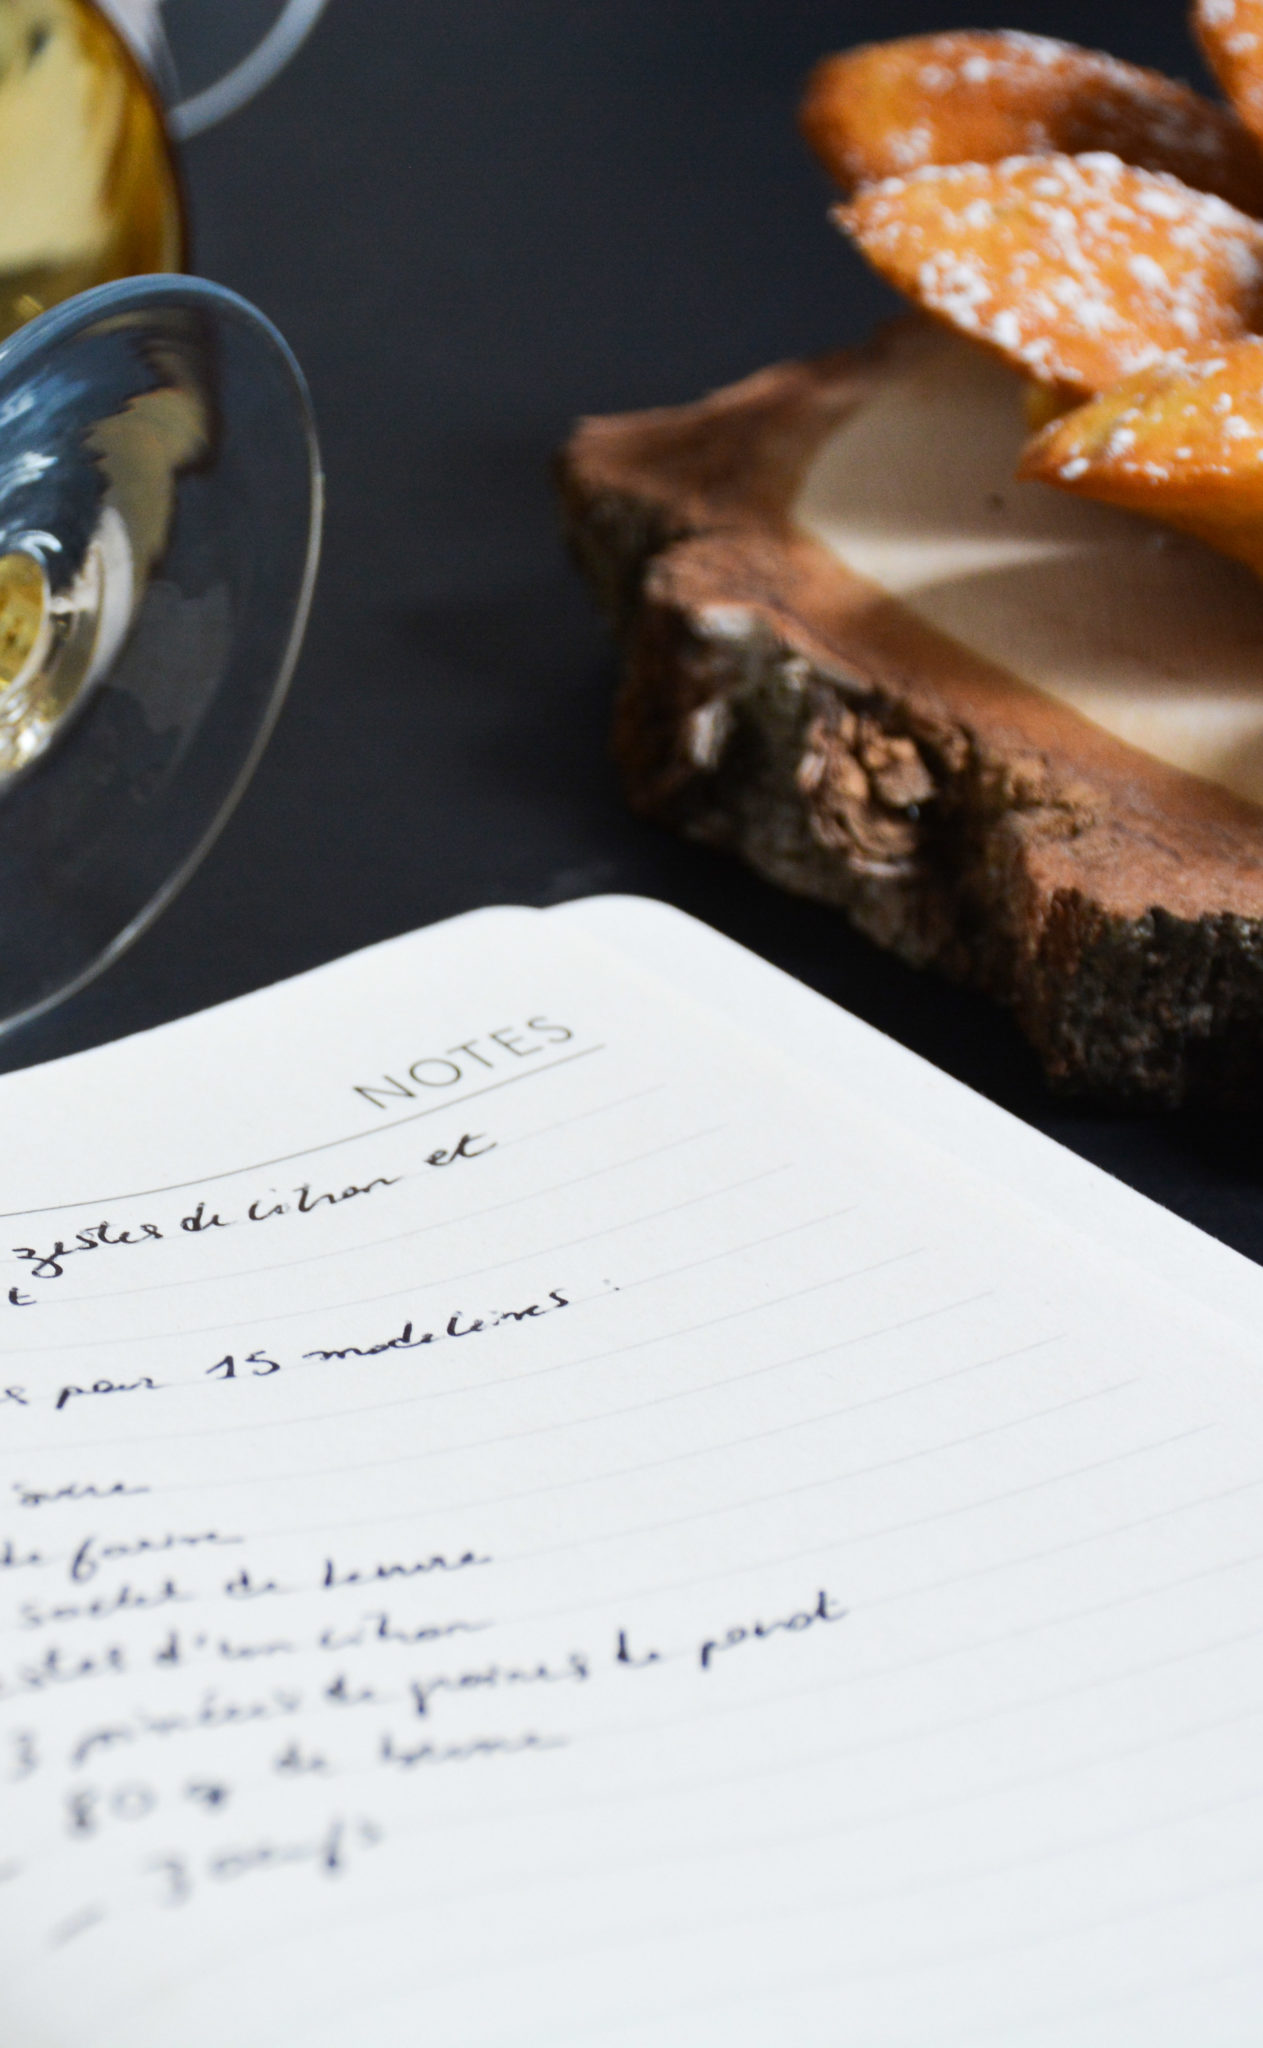 NOTES
zestes de citron et
t
s pour 15 madeleines :
sucre
de farine
sachet de levure
estes d'un citron
3 pincées de graines de pavot
80 g de beurre
- 3 oeufs